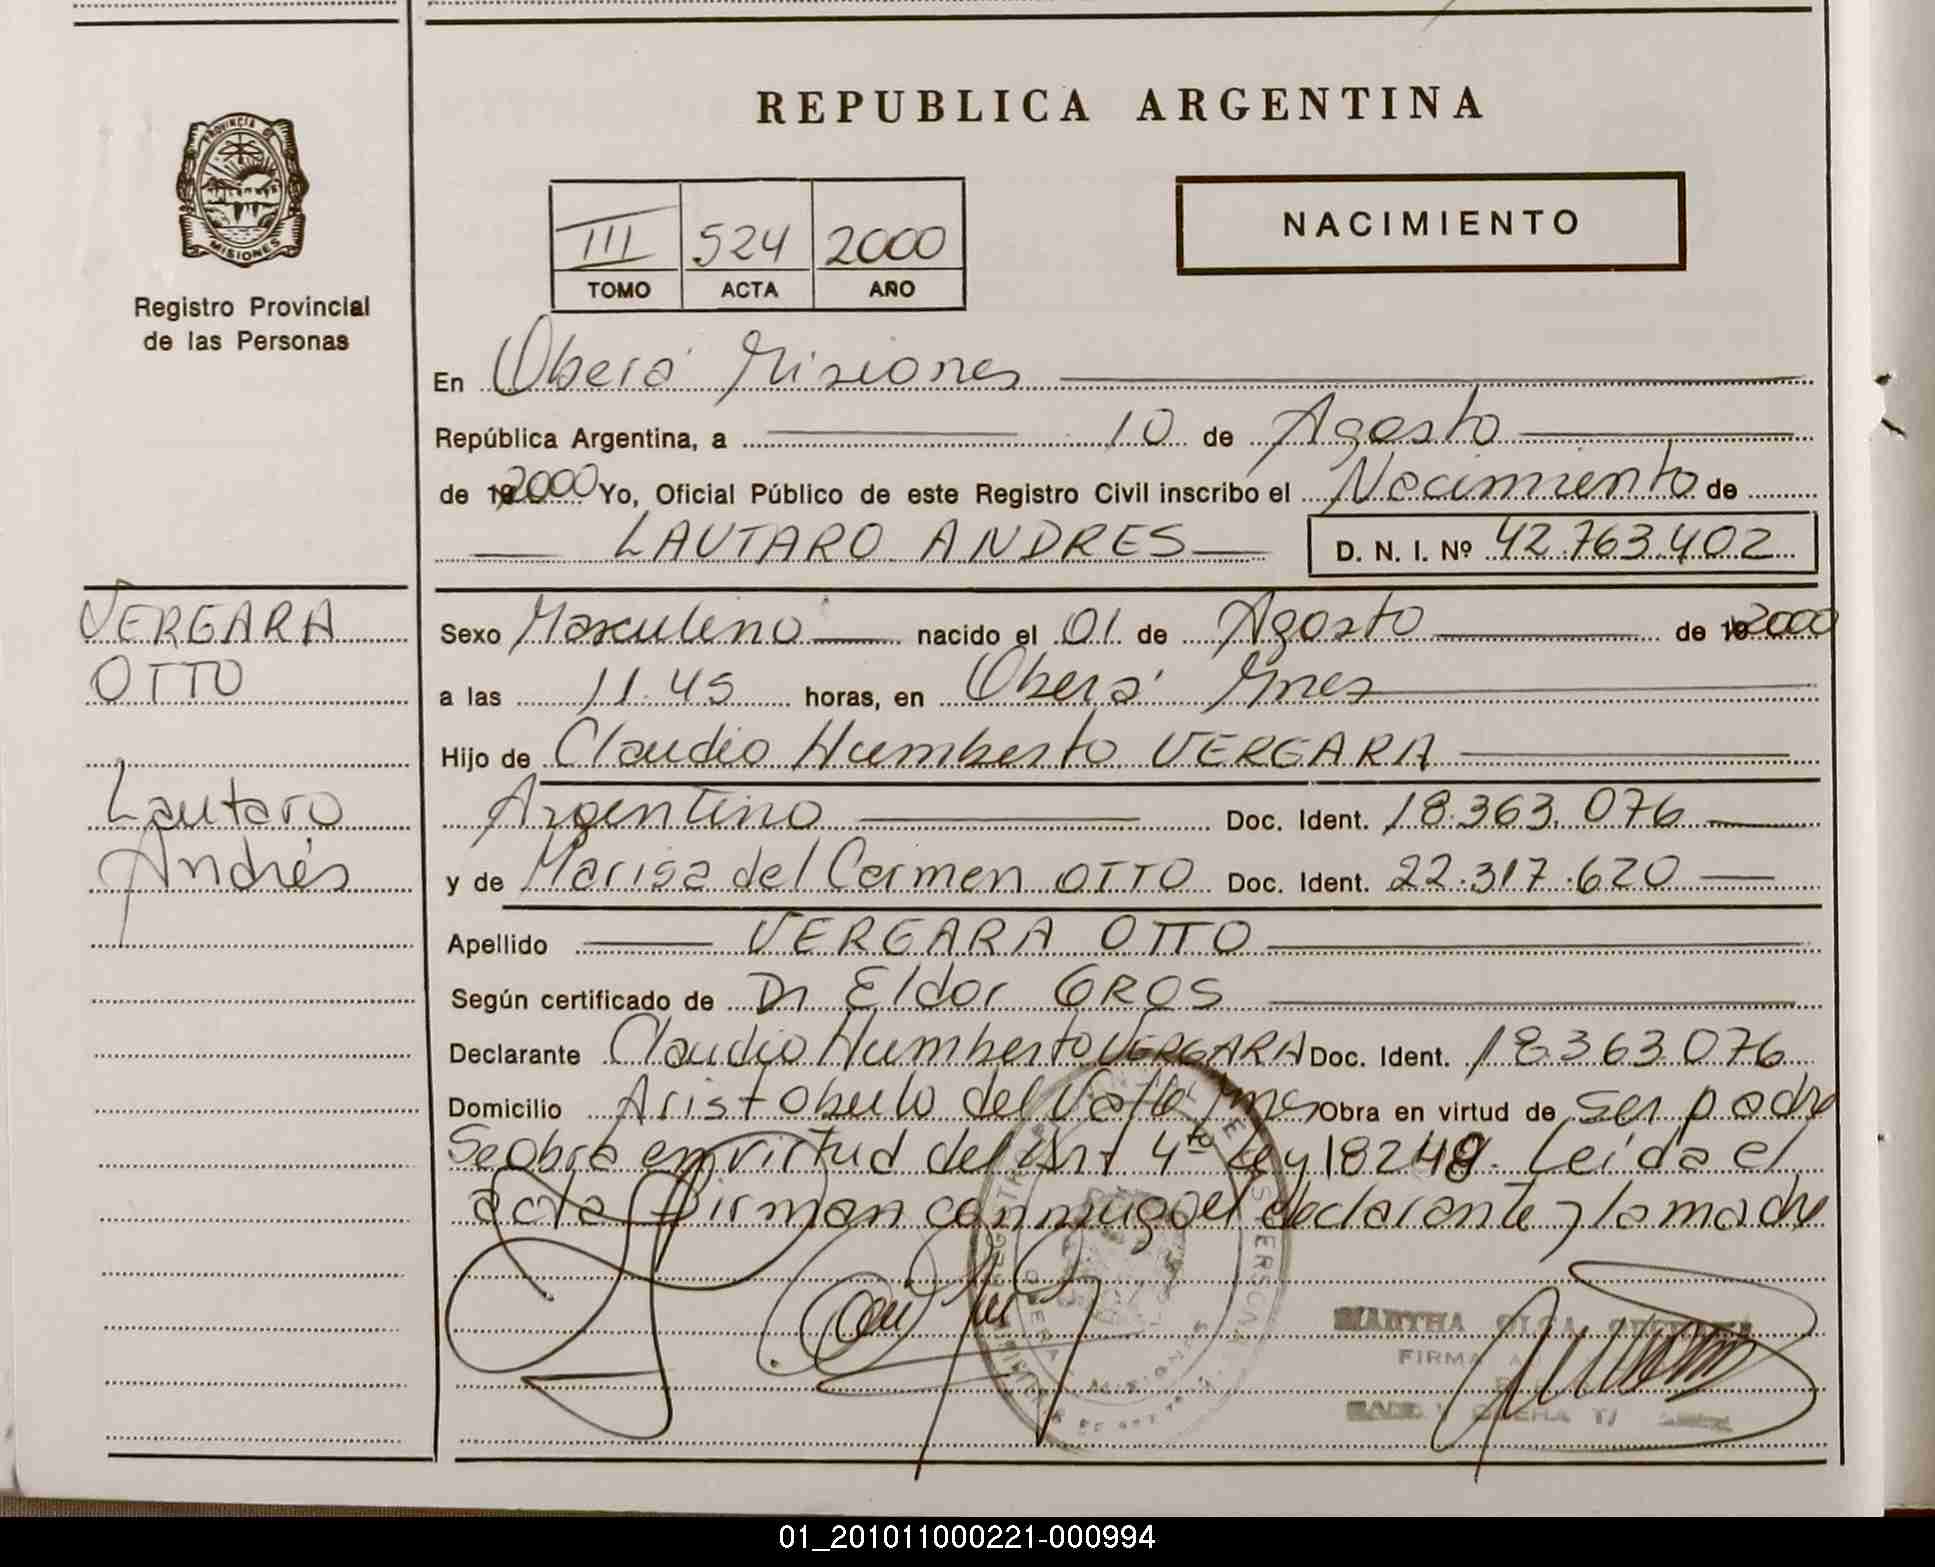 REPUBLICA ARGENTINA
PROVINCIA DE
MISIONES
Registro Provincial
de las Personas
III 524 2000
TOMO ACTA AÑO
NACIMIENTO
En Oberá Misiones
República Argentina, a 10 de Agosto
de 192000 Yo, Oficial Público de este Registro Civil inscribo el Nacimiento de
LAUTARO ANDRES D. N. I. Nº 42.763.402
VERGARA
OTTO
Lautaro
Andrés
Sexo Masculino nacido el 01 de Agosto de 192000
a las 11.45 horas, en Oberá Mnes
Hijo de Claudio Humberto VERGARA
Argentino Doc. Ident. 18.363.076
y de Marisa del Carmen OTTO Doc. Ident. 22.317.620
Apellido VERGARA OTTO
Según certificado de Dr Eldor GROS
Declarante Claudio Humberto VERGARA Doc. Ident. 18.363.076
Domicilio Aristobulo del Valle Mnes Obra en virtud de ser padre
Se obra en virtud del Art 4to Ley 18248. Leída el
acta firman conmigo el declarante y la madre
MISIONES
FIRMA
01_201011000221-000994